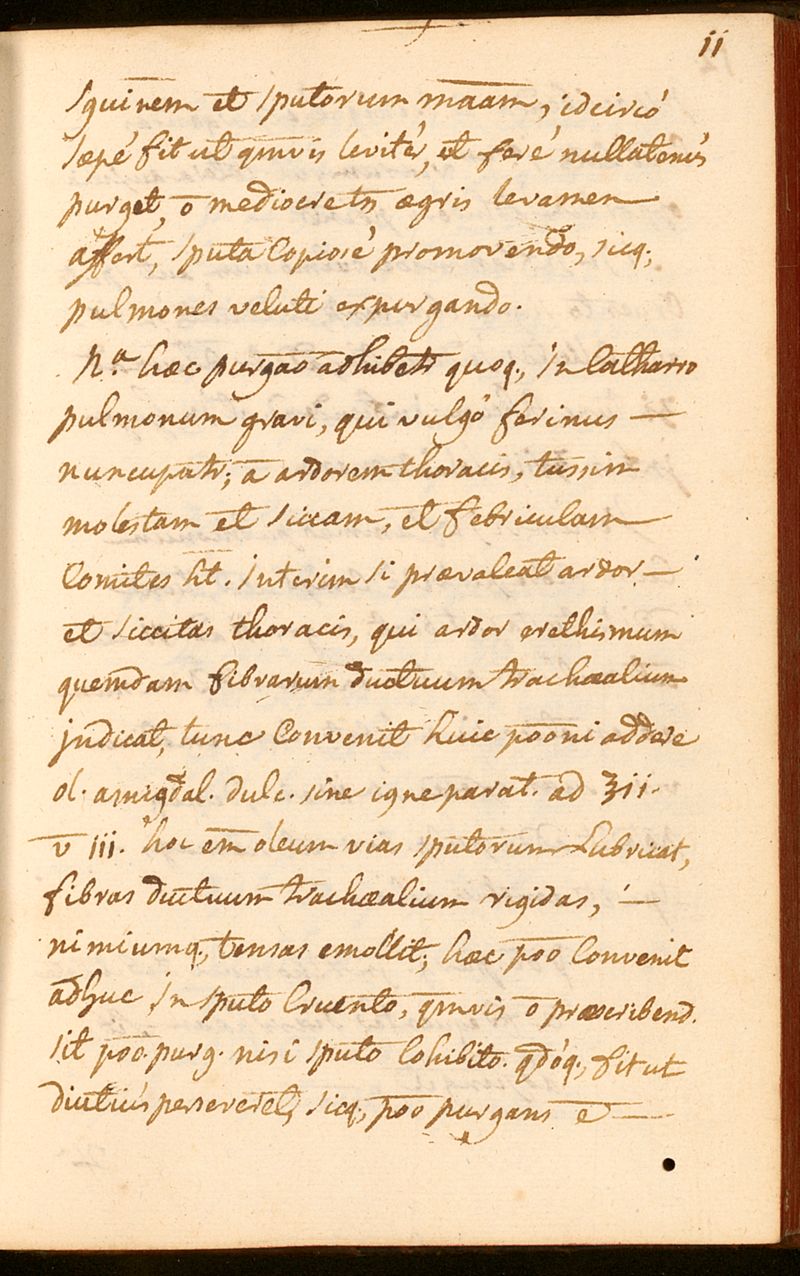 11
squinem et sputorum māam, idcircó
sæpé fit ut qmvis levitér, et feré nullatenús
purget, ō mediocre tn ægris levamen
affert, sputa Copiosé promovendo, sicq;
pulmones veluti expurgando.
N.ª hæc purgāo adhibetr quoq;, in Catharro
pulmonum gravi, qui vulgó ferinus —
nuncupatr; ā ardorem thoracis, tussim
molestam et siccam, et febriculam
Comites ht. interim si prævaleat ardor —
et siccitas thoracis, qui ardor erethismum
quemdam fibrarum ductuum trachæalium
judicat, tunc Convenit huic pōoni addere
ol. amigdal. dulc. sine igne parat. ad ʒii.
v̄ iii. hoc em̄ oleum vias sputorum Lubricat,
fibras ductuum trachæalium rigidas, —
nimiumq; tensas emollit; hæc pōo Convenit
adhuc in sputo Cruento, qmvis ō præscribend.
sit pōo purg. nisi sputo Cohibito. qdóq;, fit ut
diutiús perseveret, sicq; pōo purgans ē —